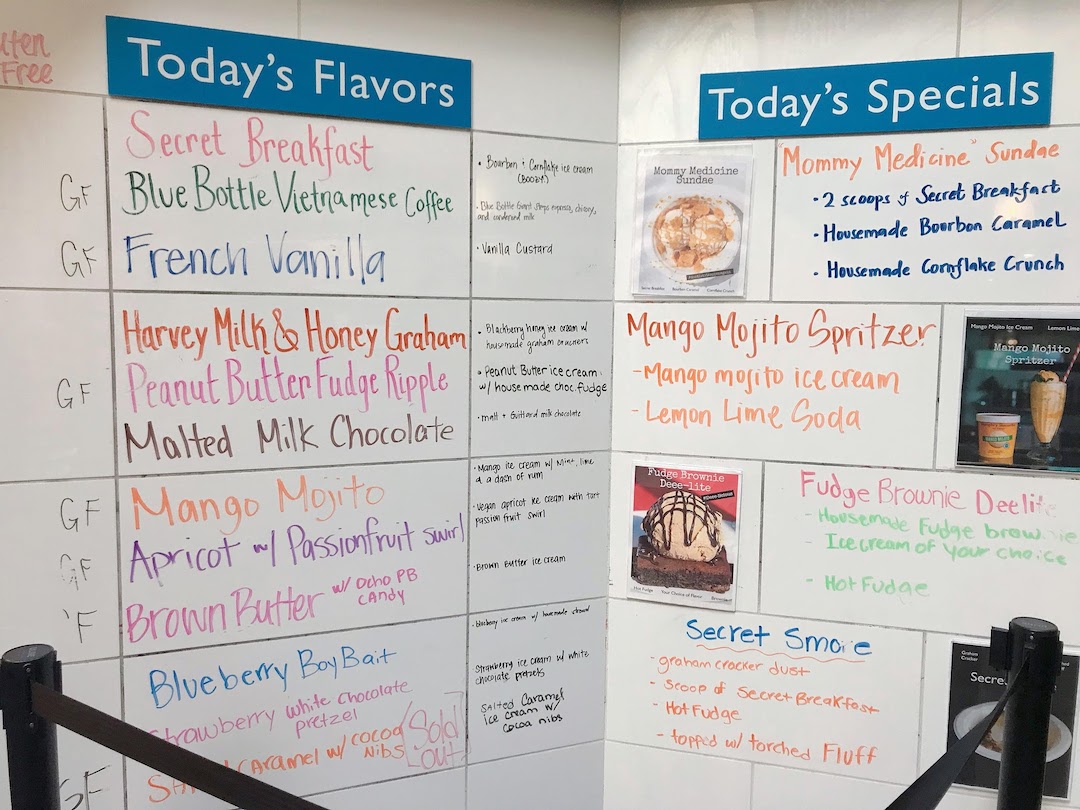 Today's Flavors
uten
Free
Secret Breakfast
• Bourbon & Cornflake ice cream
(BOOZY)
GF
Blue Bottle Vietnamese Coffee
• Blue Bottle Giant Steps espresso, chicory,
and condensed milk
GF
French Vanilla
• Vanilla Custard
Harvey Milk & Honey Graham
• Blackberry honey ice cream w/
housemade graham crackers
GF
Peanut Butter Fudge Ripple
• Peanut Butter ice cream
w/ house made choc. fudge
Malted Milk Chocolate
• malt + Guittard milk chocolate
GF
Mango Mojito
• Mango ice cream w/ Mint, lime
& a dash of rum
GF
Apricot w/ Passionfruit swirl
• Vegan apricot ice cream with tart
passion fruit swirl
'F
Brown Butter w/ Ocho PB
CANdy
• Brown Butter ice cream
Blueberry Boy Bait
• blueberry ice cream w/ homemade
Strawberry White Chocolate
pretzel
Strawberry ice cream w/ white
chocolate pretzels
GF
Caramel w/ cocoa
Nibs
Sold
out
SALTED Caramel
ice cream w/
cocoa nibs
Today's Specials
Mommy Medicine
Sundae
"Mommy Medicine" Sundae
• 2 scoops of Secret Breakfast
• Housemade Bourbon Caramel
• Housemade Cornflake Crunch
Mango Mojito Spritzer
- Mango mojito ice cream
- Lemon Lime Soda
Mango Mojito Ice Cream
Lemon Lime
Mango Mojito
Spritzer
Fudge Brownie
Deee-lite
Hot Fudge
Your Choice of Flavor
Fudge Brownie Deelite
- Housemade Fudge brownie
- Ice cream of your choice
- Hot Fudge
Secret Smore
- graham cracker dust
- Scoop of Secret Breakfast
- Hot Fudge
- topped w/ torched Fluff
Graham
Cracker
Secre